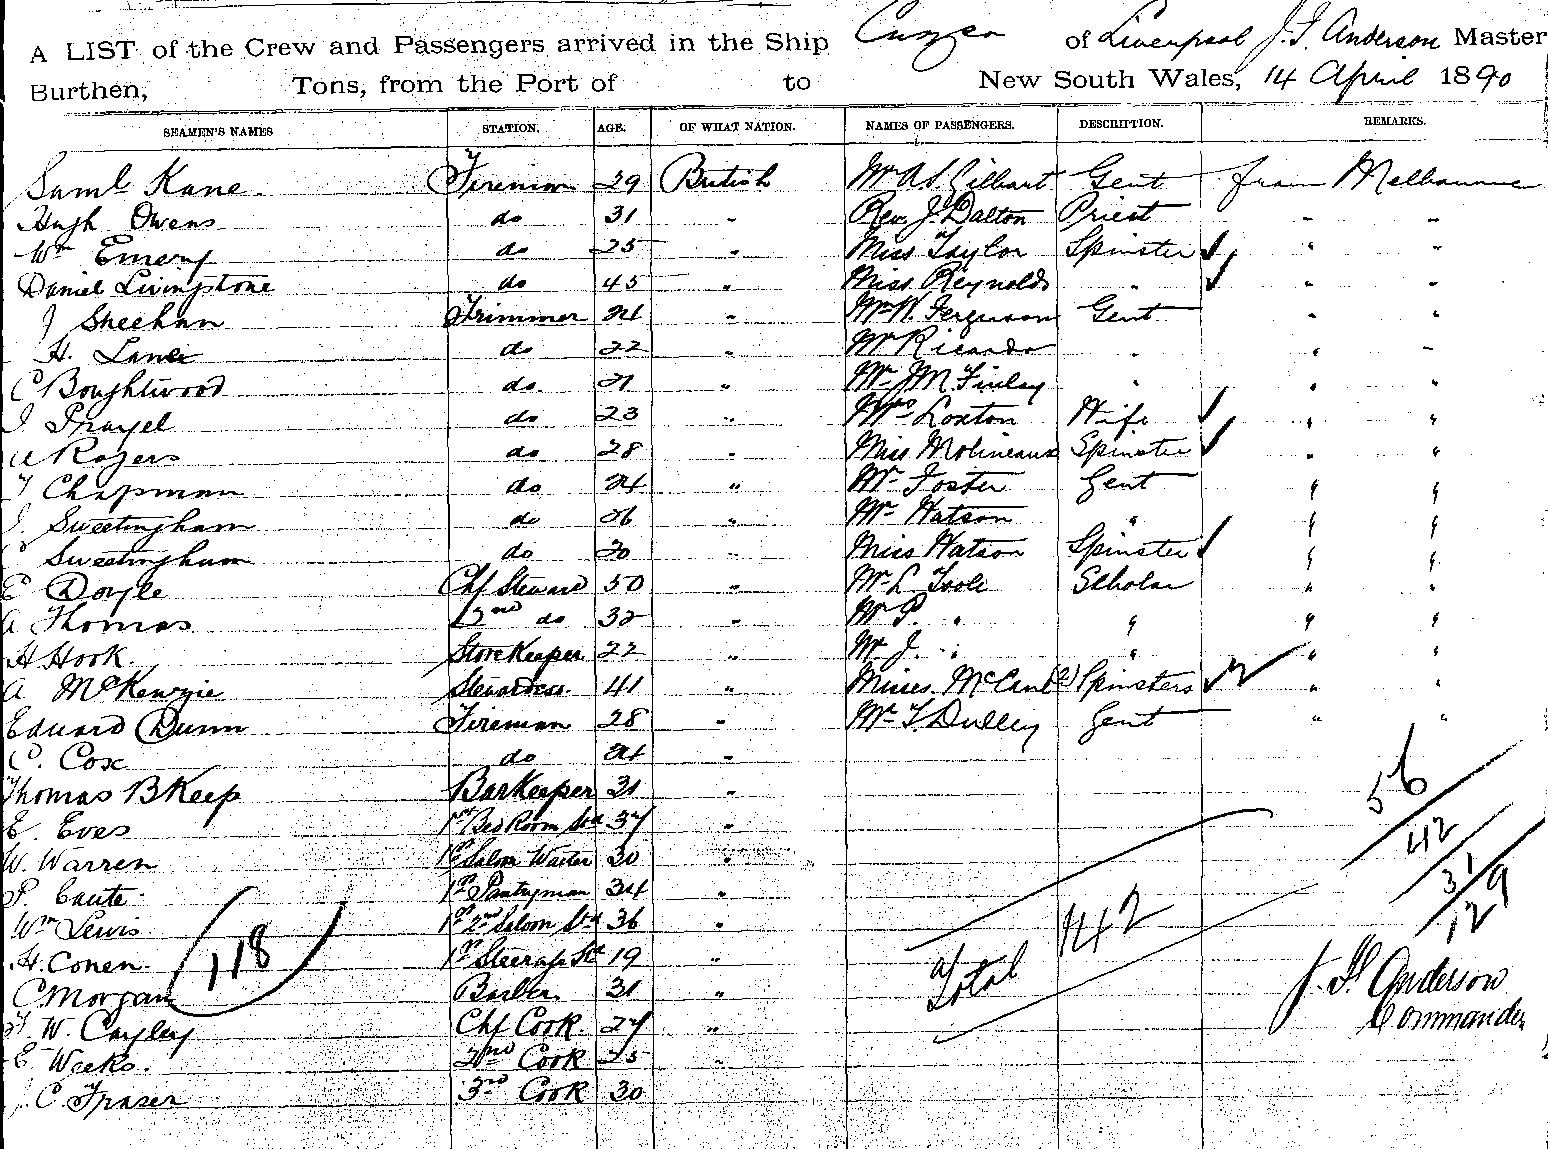 A LIST of the Crew and Passengers arrived in the Ship Cuzco of Liverpool J. F. Anderson Master
Burthen, Tons, from the Port of to New South Wales, 14 April 1890
SEAMEN'S NAMES STATION. AGE. OF WHAT NATION. NAMES OF PASSENGERS. DESCRIPTION. REMARKS.
Saml Kane Fireman 29 British Mr A S Gilbart Gent from Melbourne
Hugh Owens do 31 " Rev J. Dalton Priest " "
Wm Emery do 25 " Miss Taylor Spinster " "
Daniel Livingstone do 45 " Miss Reynolds " " "
J Sheehan Trimmer 24 " Mr W. Ferguson Gent " "
H. Lane do 22 " Mr Ricardo " " "
C Boughtwood do 21 " Mr J M Finlay " " "
J. do 23 " Mrs Loxton Wife " "
A Rogers do 28 " Miss Molineaux Spinster " "
T Chapman do 24 " Mr Foster Gent " "
J. Sweetingham do 26 " Mr Watson " " "
Sweetingham do 20 " Miss Watson Spinster " "
E Doyle Chf Steward 50 " Mr L Toole Scholar " "
A Thomas 2nd do 32 " Mr P. " " " "
H Hook Storekeeper 22 " Mr J. " " " "
A McKenzie Stewardess 41 " Misses (2) Spinsters " "
Edward Dunn Fireman 28 " Mr T. Dudley Gent " "
C. Cox do 24 "
Thomas B Keep Barkeeper 31 " 56
E. Eves 1st Bed Room Std 37 "
W. Warren 1st Saloon Waiter 30 " 42
P. Caute 1st Pantryman 34 " 31
Wm Lewis 1st 2nd Saloon Std 36 " 129
H. Conen 1st Steerage Std 19 " Total 142
118
C Morgan Barber 31 " J. F. Anderson
F. W. Cayley Chf Cook 27 " Commander
E. Weeks 2nd Cook 25 "
J. C. Fraser 3rd Cook 30